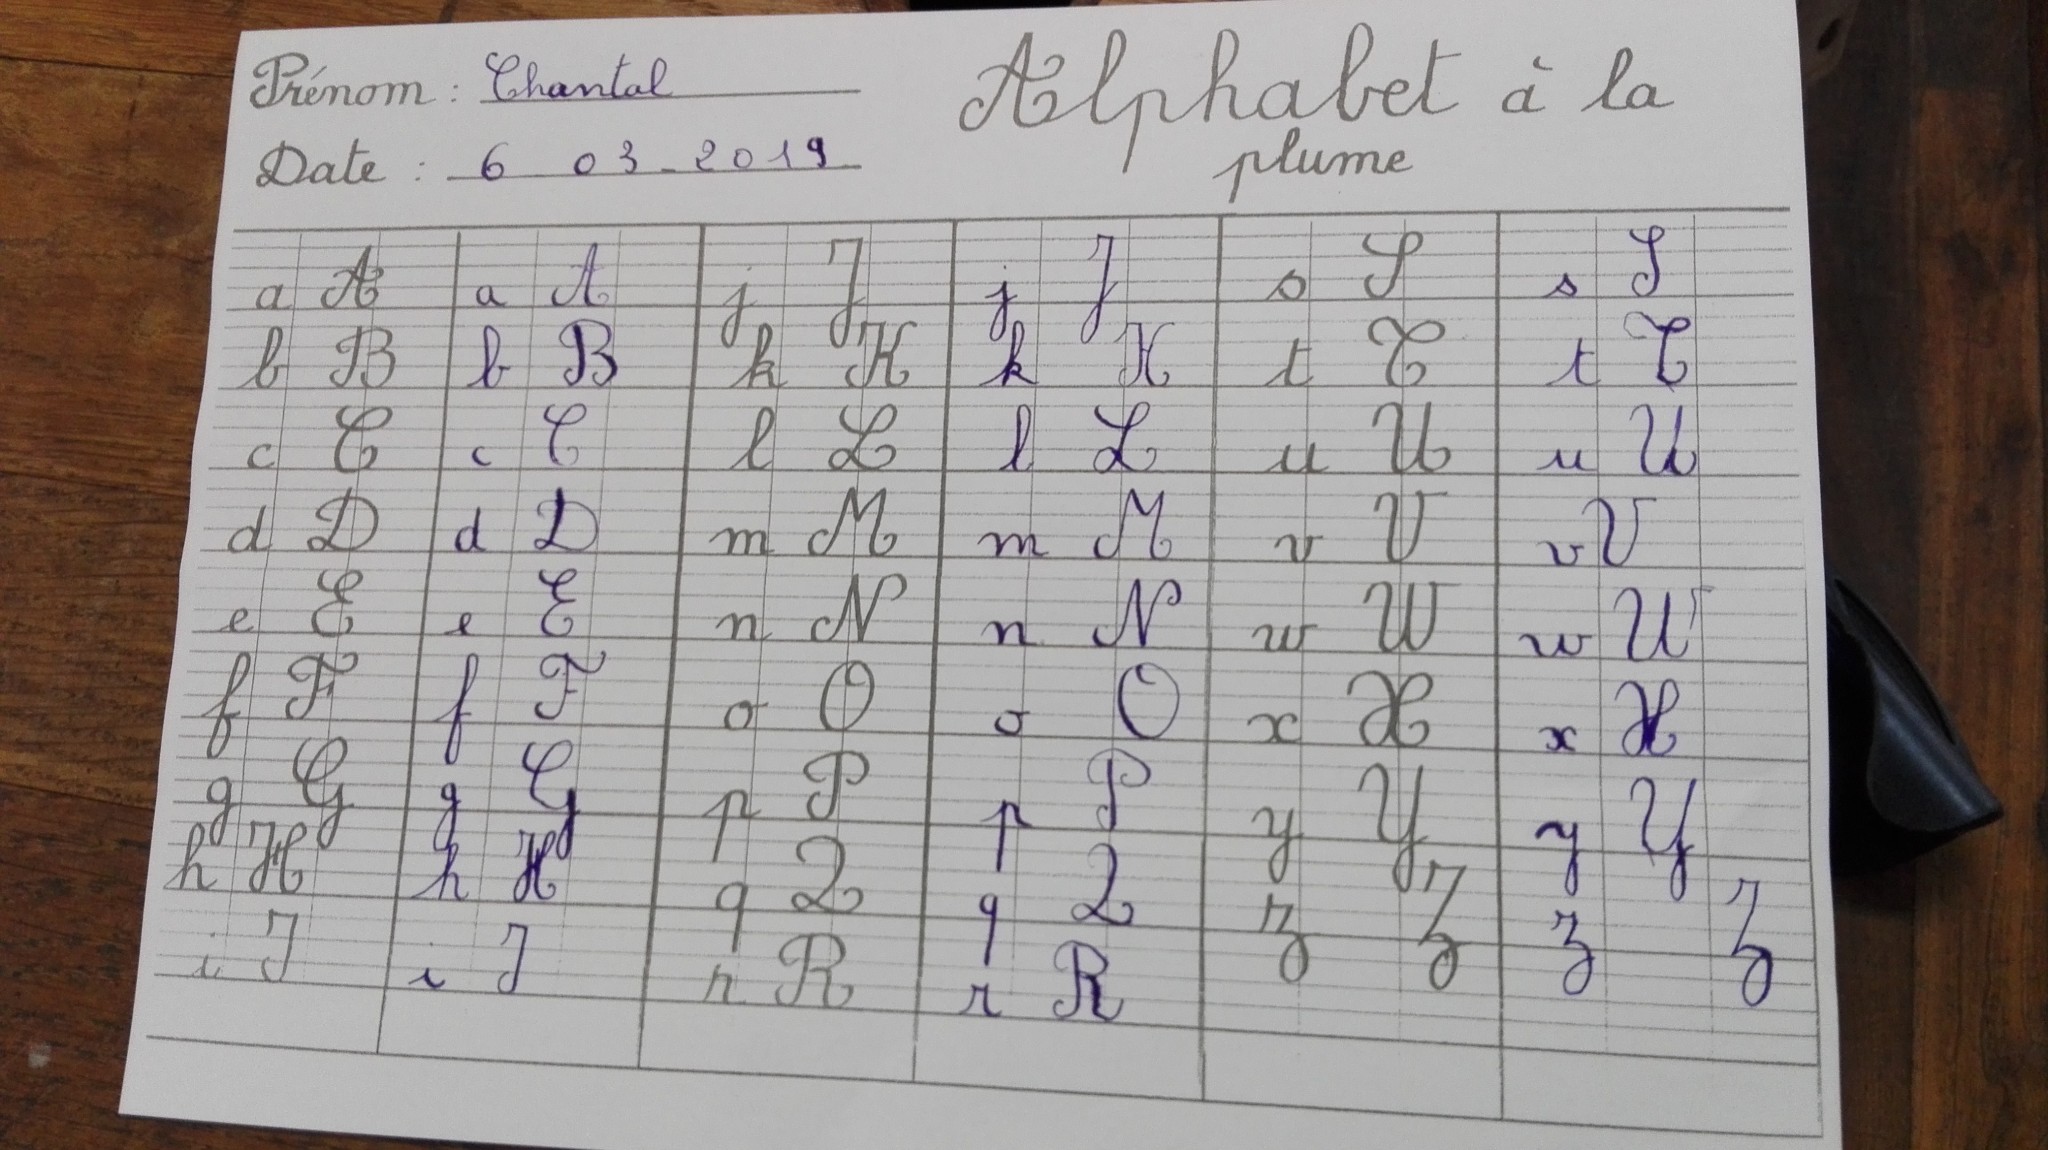 Prénom : Chantal
Date : 6 03 2019
Alphabet à la
plume
a A a A j J j J s S s S
b B b B k K k K t T t T
c C c C l L l L u U u U
d D d D m M m M v V v V
e E e E n N n N w W w W
f F f F o O o O x X x X
g G g G p P p P y Y y Y
h H h H q Q q Q z Z z Z
i I i I r R r R